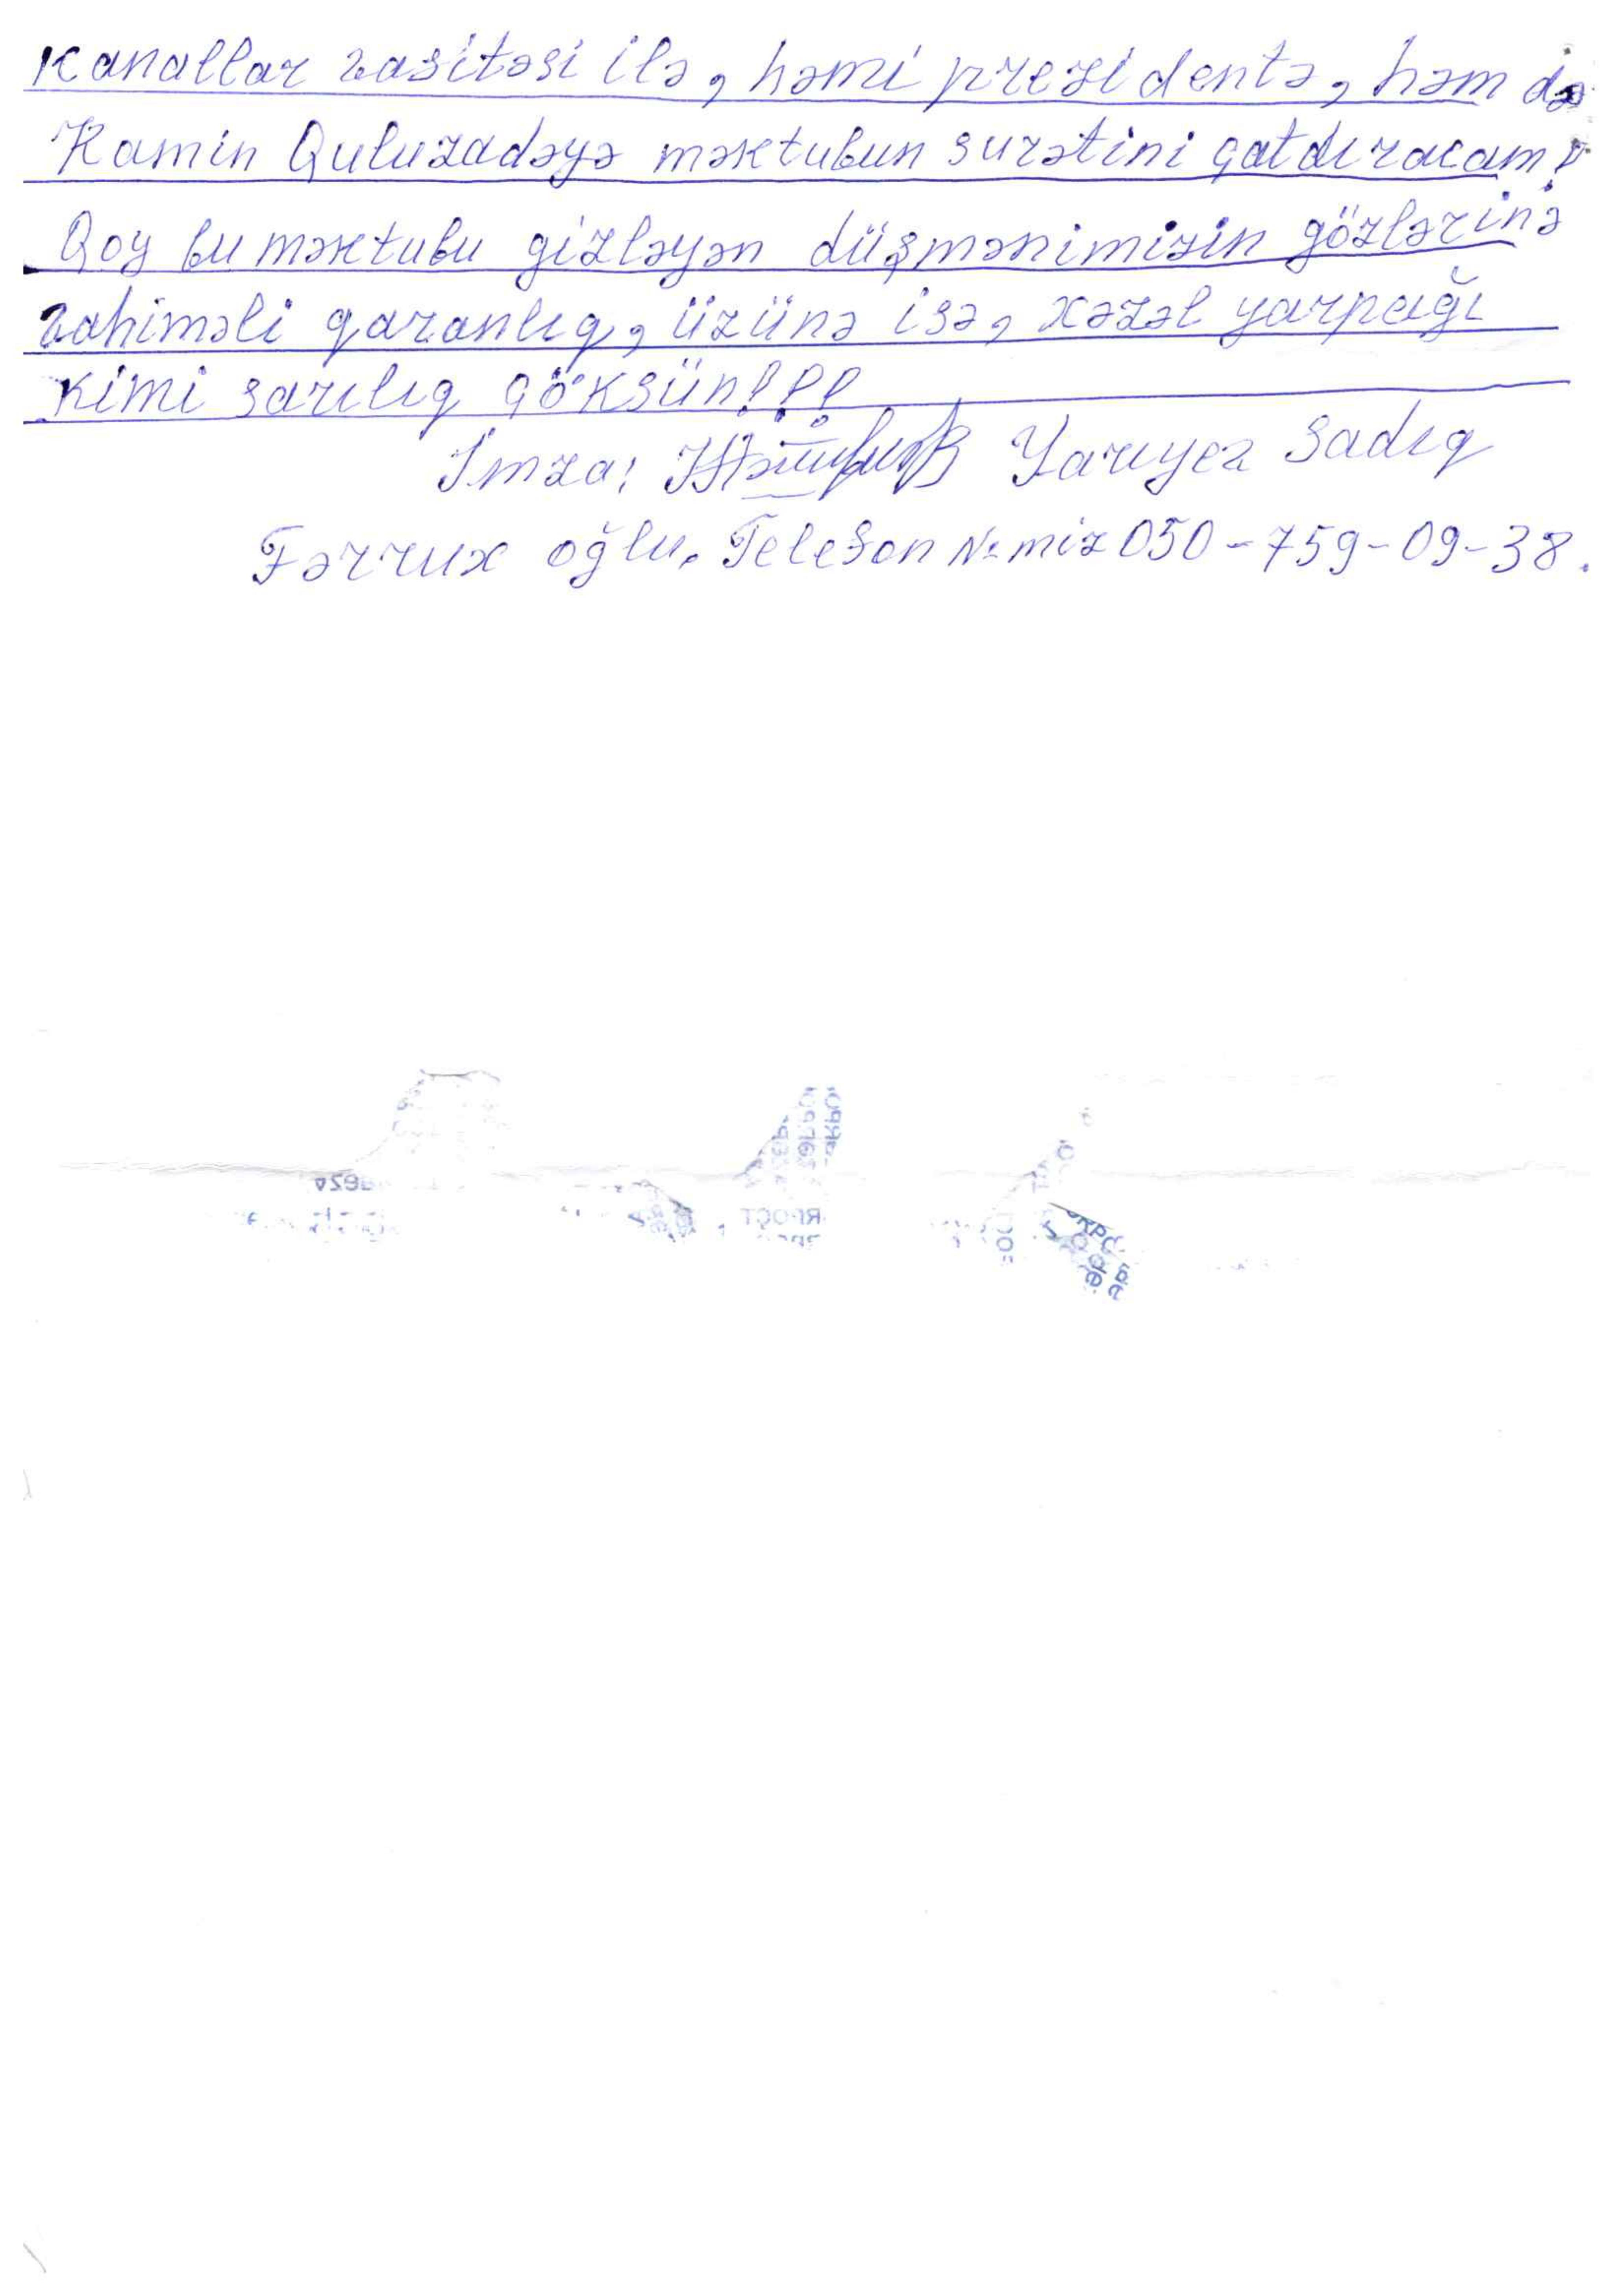 Kanallar vasitəsi ilə, həmi prezidentə, həm də
Ramin Quluzadəyə məktubun surətini çatdıracam!
Qoy bu məktubu gizləyən düşmənimizin gözlərinə
vahiməli qaranlıq, üzünə isə, xəzəl yarpağı
kimi sarılıq çöksün!!!
İmza: Yarıyev Sadıq
Fərrux oğlu. Telefon №miz 050-759-09-38.